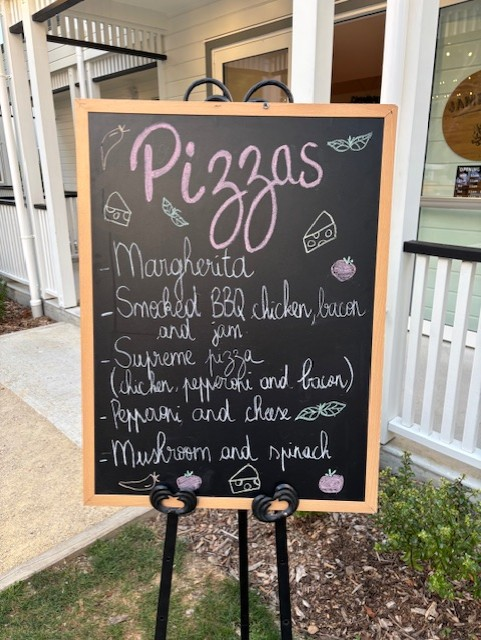 Pizzas
- Margherita
- Smocked BBQ chicken, bacon
and jam
- Supreme pizza
(chicken, pepperoni and bacon)
- Pepperoni and cheese
- Mushroom and spinach